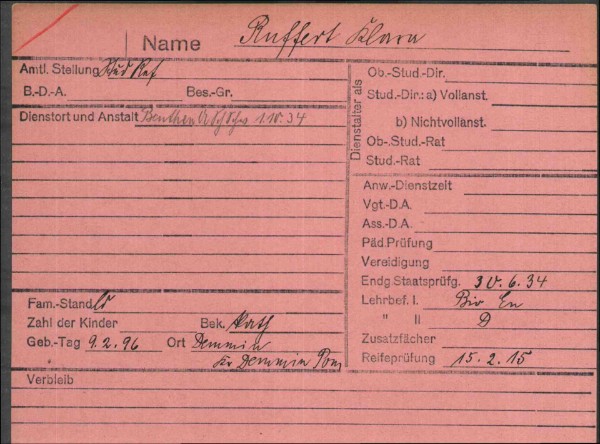 Name Ruffert Klara
Amtl. Stellung Stud Ref
B.-D.-A. Bes.-Gr.
Dienstort und Anstalt Beuthen 1.10.34
Fam.-Stand ld
Zahl der Kinder Bek. kath
Geb.-Tag 9.2.96 Ort Demmin
Kr Demmin Pom
Verbleib
Dienstalter als
Ob.-Stud.-Dir.
Stud.-Dir.: a) Vollanst.
b) Nichtvollanst.
Ob.-Stud.-Rat
Stud.-Rat
Anw.-Dienstzeit
Vgt.-D.A.
Ass.-D.A.
Päd.Prüfung
Vereidigung
Endg Staatsprüfg. 30.6.34
Lehrbef. I. Bio En
" II D
Zusatzfächer
Reifeprüfung 15.2.15